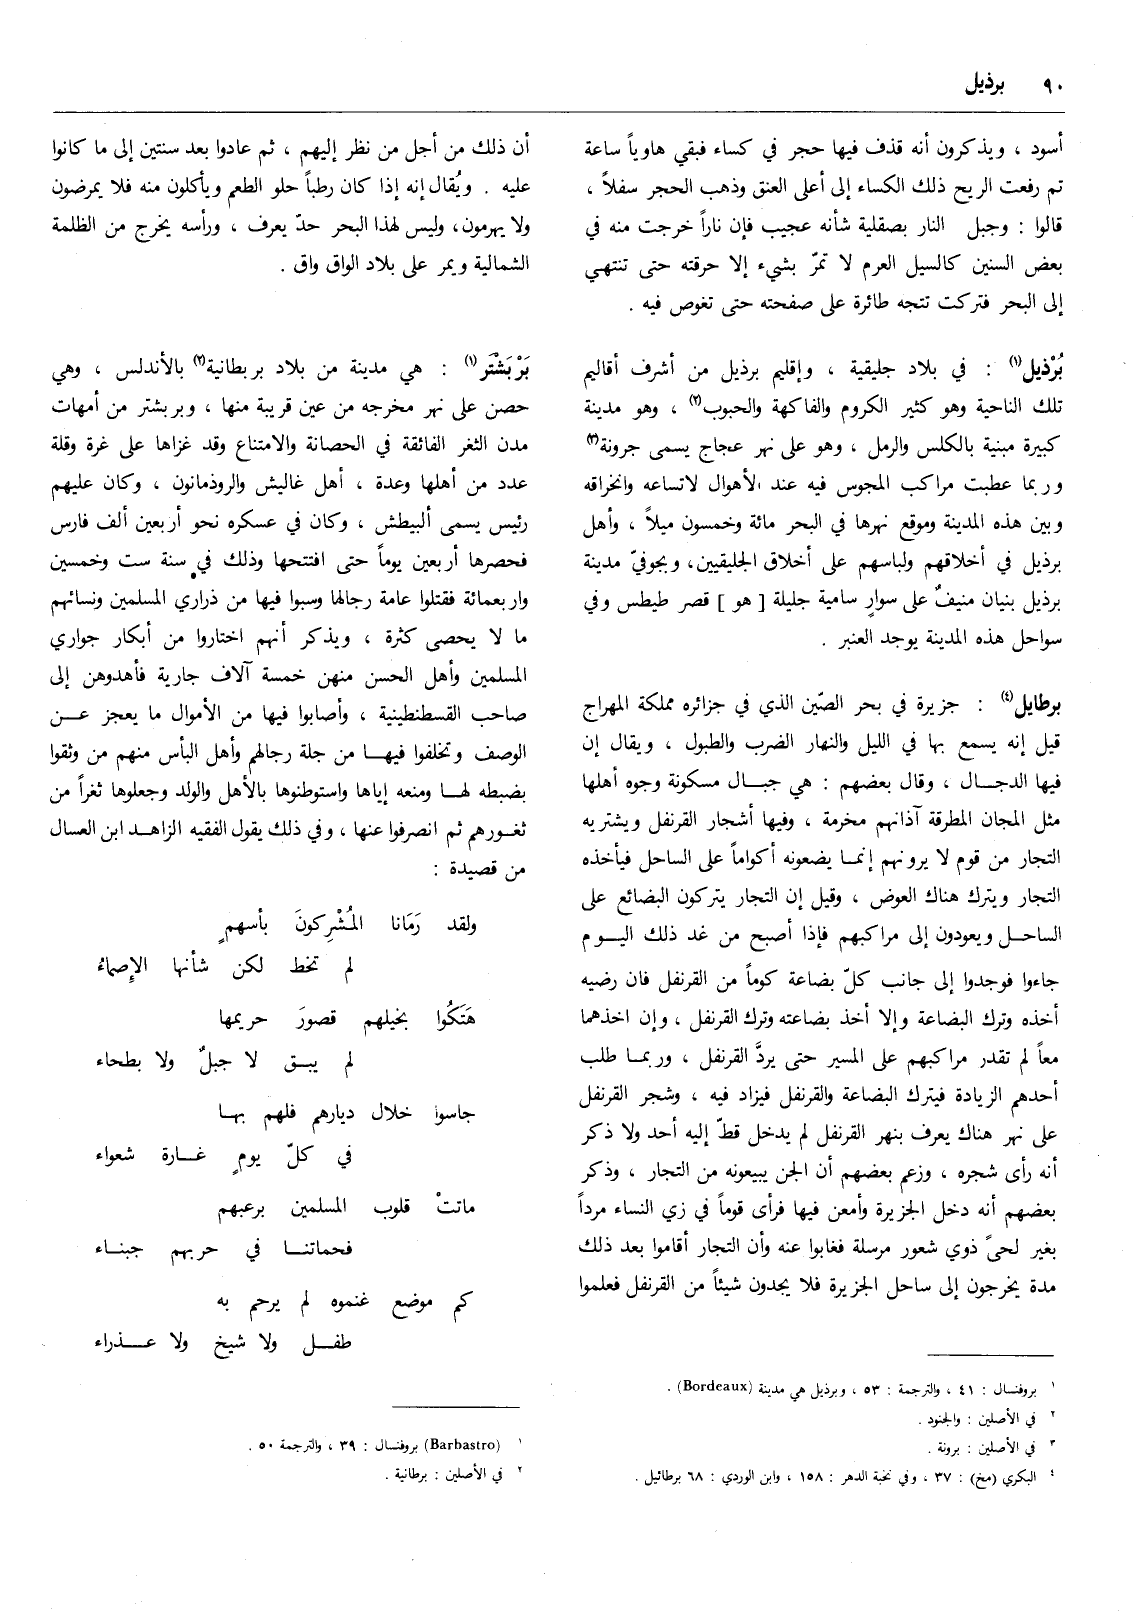 ٩٠ برذيل
أسود ، ويذكرون أنه قذف فيها حجر في كساء فبقي هاوياً ساعة
ثم رفعت الريح ذلك الكساء إلى أعلى العنق وذهب الحجر سفلاً ،
قالوا : وجبل النار بصقلية شأنه عجيب فإن ناراً خرجت منه في
بعض السنين كالسيل العرم لا تمرّ بشيء إلا حرقته حتى تنتهي
إلى البحر فتركت تتجه طائرة على صفحته حتى تغوص فيه .
بُرْذيل(١) : في بلاد جليقية ، وإقليم برذيل من أشرف أقاليم
تلك الناحية وهو كثير الكروم والفاكهة والحبوب(٢) ، وهو مدينة
كبيرة مبنية بالكلس والرمل ، وهو على نهر عجاج يسمى جرونة(٣)
وربما عطبت مراكب المجوس فيه عند الأهوال لاتساعه وانخراقه
وبين هذه المدينة وموقع نهرها في البحر مائة وخمسون ميلاً ، وأهل
برذيل في أخلاقهم ولباسهم على أخلاق الجليقيين، وبجوفيّ مدينة
برذيل بنيان منيفٌ على سوارٍ سامية جليلة [ هو ] قصر طيطس وفي
سواحل هذه المدينة يوجد العنبر .
برطايل(٤) : جزيرة في بحر الصّين الذي في جزائره مملكة المهراج
قيل إنه يسمع بها في الليل والنهار الضرب والطبول ، ويقال إن
فيها الدجال ، وقال بعضهم : هي جبال مسكونة وجوه أهلها
مثل المجان المطرقة آذانهم مخرمة ، وفيها أشجار القرنفل ويشتريه
التجار من قوم لا يرونهم إنما يضعونه أكواماً على الساحل فيأخذه
التجار ويترك هناك العوض ، وقيل إن التجار يتركون البضائع على
الساحل ويعودون إلى مراكبهم فإذا أصبح من غد ذلك اليوم
جاءوا فوجدوا إلى جانب كلّ بضاعة كوماً من القرنفل فان رضيه
أخذه وترك البضاعة وإلا أخذ بضاعته وترك القرنفل ، وإن اخذهما
معاً لم تقدر مراكبهم على المسير حتى يردَّ القرنفل ، وربما طلب
أحدهم الزيادة فيترك البضاعة والقرنفل فيزاد فيه ، وشجر القرنفل
على نهر هناك يعرف بنهر القرنفل لم يدخل قطّ إليه أحد ولا ذكر
أنه رأى شجره ، وزعم بعضهم أن الجن يبيعونه من التجار ، وذكر
بعضهم أنه دخل الجزيرة وأمعن فيها فرأى قوماً في زي النساء مرداً
بغير لحىً ذوي شعور مرسلة فغابوا عنه وأن التجار أقاموا بعد ذلك
مدة يخرجون إلى ساحل الجزيرة فلا يجدون شيئاً من القرنفل فعلموا
١ بروفنسال : ٤١ ، والترجمة : ٥٣ ، وبرذيل هي مدينة (Bordeaux) .
٢ في الأصلين : والجنود .
٣ في الأصلين : برونة .
٤ البكري (مخ) : ٣٧ ، وفي نخبة الدهر : ١٥٨ ، وابن الوردي : ٦٨ برطائيل .
أن ذلك من أجل من نظر إليهم ، ثم عادوا بعد سنتين إلى ما كانوا
عليه . ويُقال إنه إذا كان رطباً حلو الطعم ويأكلون منه فلا يمرضون
ولا يهرمون، وليس لهذا البحر حدّ يعرف ، ورأسه يخرج من الظلمة
الشمالية ويمر على بلاد الواق واق .
بَرْبَشْتَر(١) : هي مدينة من بلاد بربطانية(٢) بالأندلس ، وهي
حصن على نهر مخرجه من عين قريبة منها ، وبربشتر من أمهات
مدن الثغر الفائقة في الحصانة والامتناع وقد غزاها على غرة وقلة
عدد من أهلها وعدة ، أهل غاليش والروذمانون ، وكان عليهم
رئيس يسمى ألبيطش ، وكان في عسكره نحو أربعين ألف فارس
فحصرها أربعين يوماً حتى افتتحها وذلك في سنة ست وخمسين
واربعمائة فقتلوا عامة رجالها وسبوا فيها من ذراري المسلمين ونسائهم
ما لا يحصى كثرة ، ويذكر أنهم اختاروا من أبكار جواري
المسلمين وأهل الحسن منهن خمسة آلاف جارية فأهدوهن إلى
صاحب القسطنطينية ، وأصابوا فيها من الأموال ما يعجز عن
الوصف وتخلفوا فيها من جلة رجالهم وأهل البأس منهم من وثقوا
بضبطه لها ومنعه إياها واستوطنوها بالأهل والولد وجعلوها ثغراً من
ثغورهم ثم انصرفوا عنها ، وفي ذلك يقول الفقيه الزاهد ابن العسال
من قصيدة :
ولقد رَمَانا المُشْرِكونَ بأسهمٍ
لم تخط لكن شأنها الإِصماءُ
هَتَكُوا بخيلهم قصورَ حريمها
لم يبق لا جبلٌ ولا بطحاء
جاسوا خلال ديارهم فلهم بها
في كلّ يومٍ غارة شعواء
ماتتْ قلوب المسلمين برعبهم
فحماتنا في حربهم جبناء
كم موضع غنموه لم يرحم به
طفل ولا شيخ ولا عذراء
١ (Barbastro) بروفنسال : ٣٩ ، والترجمة ٥٠ .
٢ في الأصلين : برطانية .